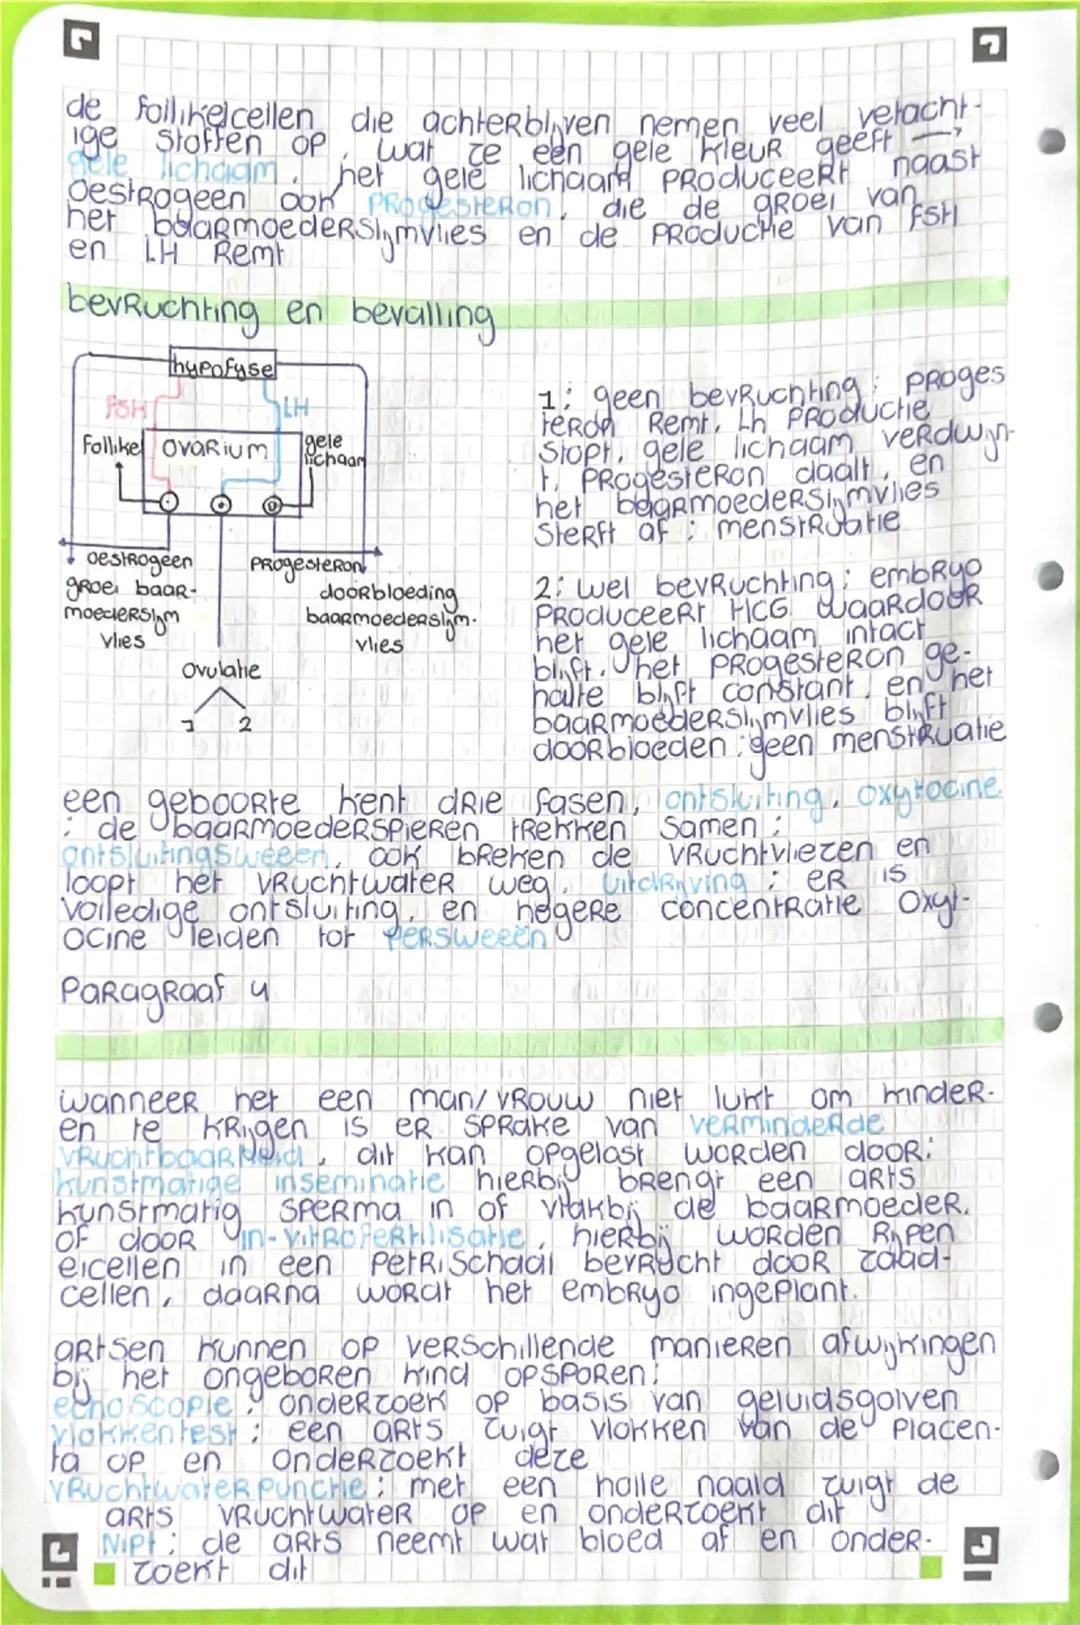 de follikelcellen die achterblijven nemen veel vetacht-
ige stoffen op, wat ze een gele kleur geeft →
gele lichaam. het gele lichaam produceert naast
oestrogeen ook progesteron, die de groei van
het baarmoederslijmvlies en de productie van FSH
en LH remt
bevruchting en bevalling
hypofyse
FSH
LH
follikel
ovarium
gele
lichaam
oestrogeen
groei baar-
moederslijm
vlies
progesteron
doorbloeding
baarmoederslijm-
vlies
ovulatie
1
2
1: geen bevruchting: proges
teron remt, Lh productie
stopt, gele lichaam verdwijn-
t, progesteron daalt, en
het baarmoederslijmvlies
sterft af: menstruatie
2: wel bevruchting: embryo
produceert HCG waardoor
het gele lichaam intact
blijft. het progesteron ge-
halte blijft constant, en het
baarmoederslijmvlies blijft
doorbloeden: geen menstruatie
een geboorte kent drie fasen, ontsluiting, oxytocine
: de baarmoederspieren trekken samen:
ontsluitingsweeen, ook breken de vruchtvliezen en
loopt het vruchtwater weg. uitdrijving: er is
volledige ontsluiting, en hogere concentratie oxyt-
ocine leiden tot persweeen
Paragraaf 4
wanneer het een man/vrouw niet lukt om kinder-
en te krijgen is er sprake van verminderde
vruchtbaarheid, dit kan opgelost worden door:
kunstmatige inseminatie hierbij brengt een arts
kunstmatig sperma in of vlakbij de baarmoeder.
of door in-vitrofertilisatie, hierbij worden rijpen
eicellen in een petrischaal bevrucht door zaad-
cellen, daarna wordt het embryo ingeplant.
artsen kunnen op verschillende manieren afwijkingen
bij het ongeboren kind opsporen:
echoscopie: onderzoek op basis van geluidsgolven
vlokkentest: een arts zuigt vlokken van de placen-
ta op en onderzoekt deze
vruchtwaterpunctie: met een holle naald zuigt de
arts vruchtwater op en onderzoekt dit
Nipt: de arts neemt wat bloed af en onder-
zoekt dit